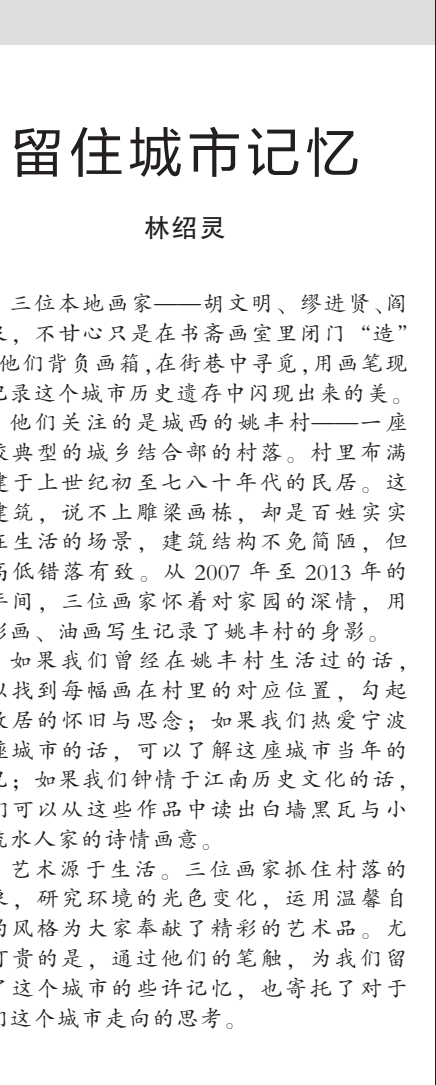 留住城市记忆
林绍灵
三位本地画家——胡文明、缪进贤、阎
，不甘心只是在书斋画室里闭门“造”
他们背负画箱，在街巷中寻觅，用画笔现
记录这个城市历史遗存中闪现出来的美。
他们关注的是城西的姚丰村——一座
较典型的城乡结合部的村落。村里布满
建于上世纪初至七八十年代的民居。这
建筑，说不上雕梁画栋，却是百姓实实
在生活的场景，建筑结构不免简陋，但
高低错落有致。从 2007 年至 2013 年的
年间，三位画家怀着对家园的深情，用
彩画、油画写生记录了姚丰村的身影。
如果我们曾经在姚丰村生活过的话，
以找到每幅画在村里的对应位置，勾起
故居的怀旧与思念；如果我们热爱宁波
座城市的话，可以了解这座城市当年的
；如果我们钟情于江南历史文化的话，
们可以从这些作品中读出白墙黑瓦与小
流水人家的诗情画意。
艺术源于生活。三位画家抓住村落的
，研究环境的光色变化，运用温馨自
的风格为大家奉献了精彩的艺术品。尤
可贵的是，通过他们的笔触，为我们留
了这个城市的些许记忆，也寄托了对于
们这个城市走向的思考。